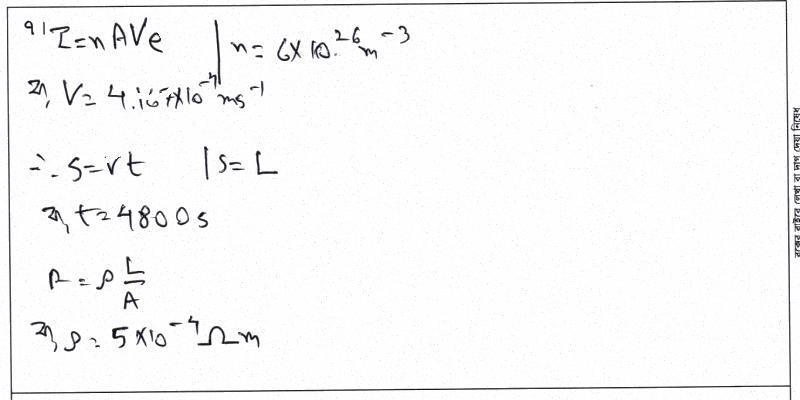 ৭। I = nAVe | n = 6×10^26 m^-3
বা, V = 4.167×10^-4 ms^-1
∴ s = vt | s = L
বা, t = 4800 s
R = ρ L/A
বা, ρ = 5×10^-4 Ωm
বক্সের বাইরে লেখা বা দাগ দেয়া নিষেধ